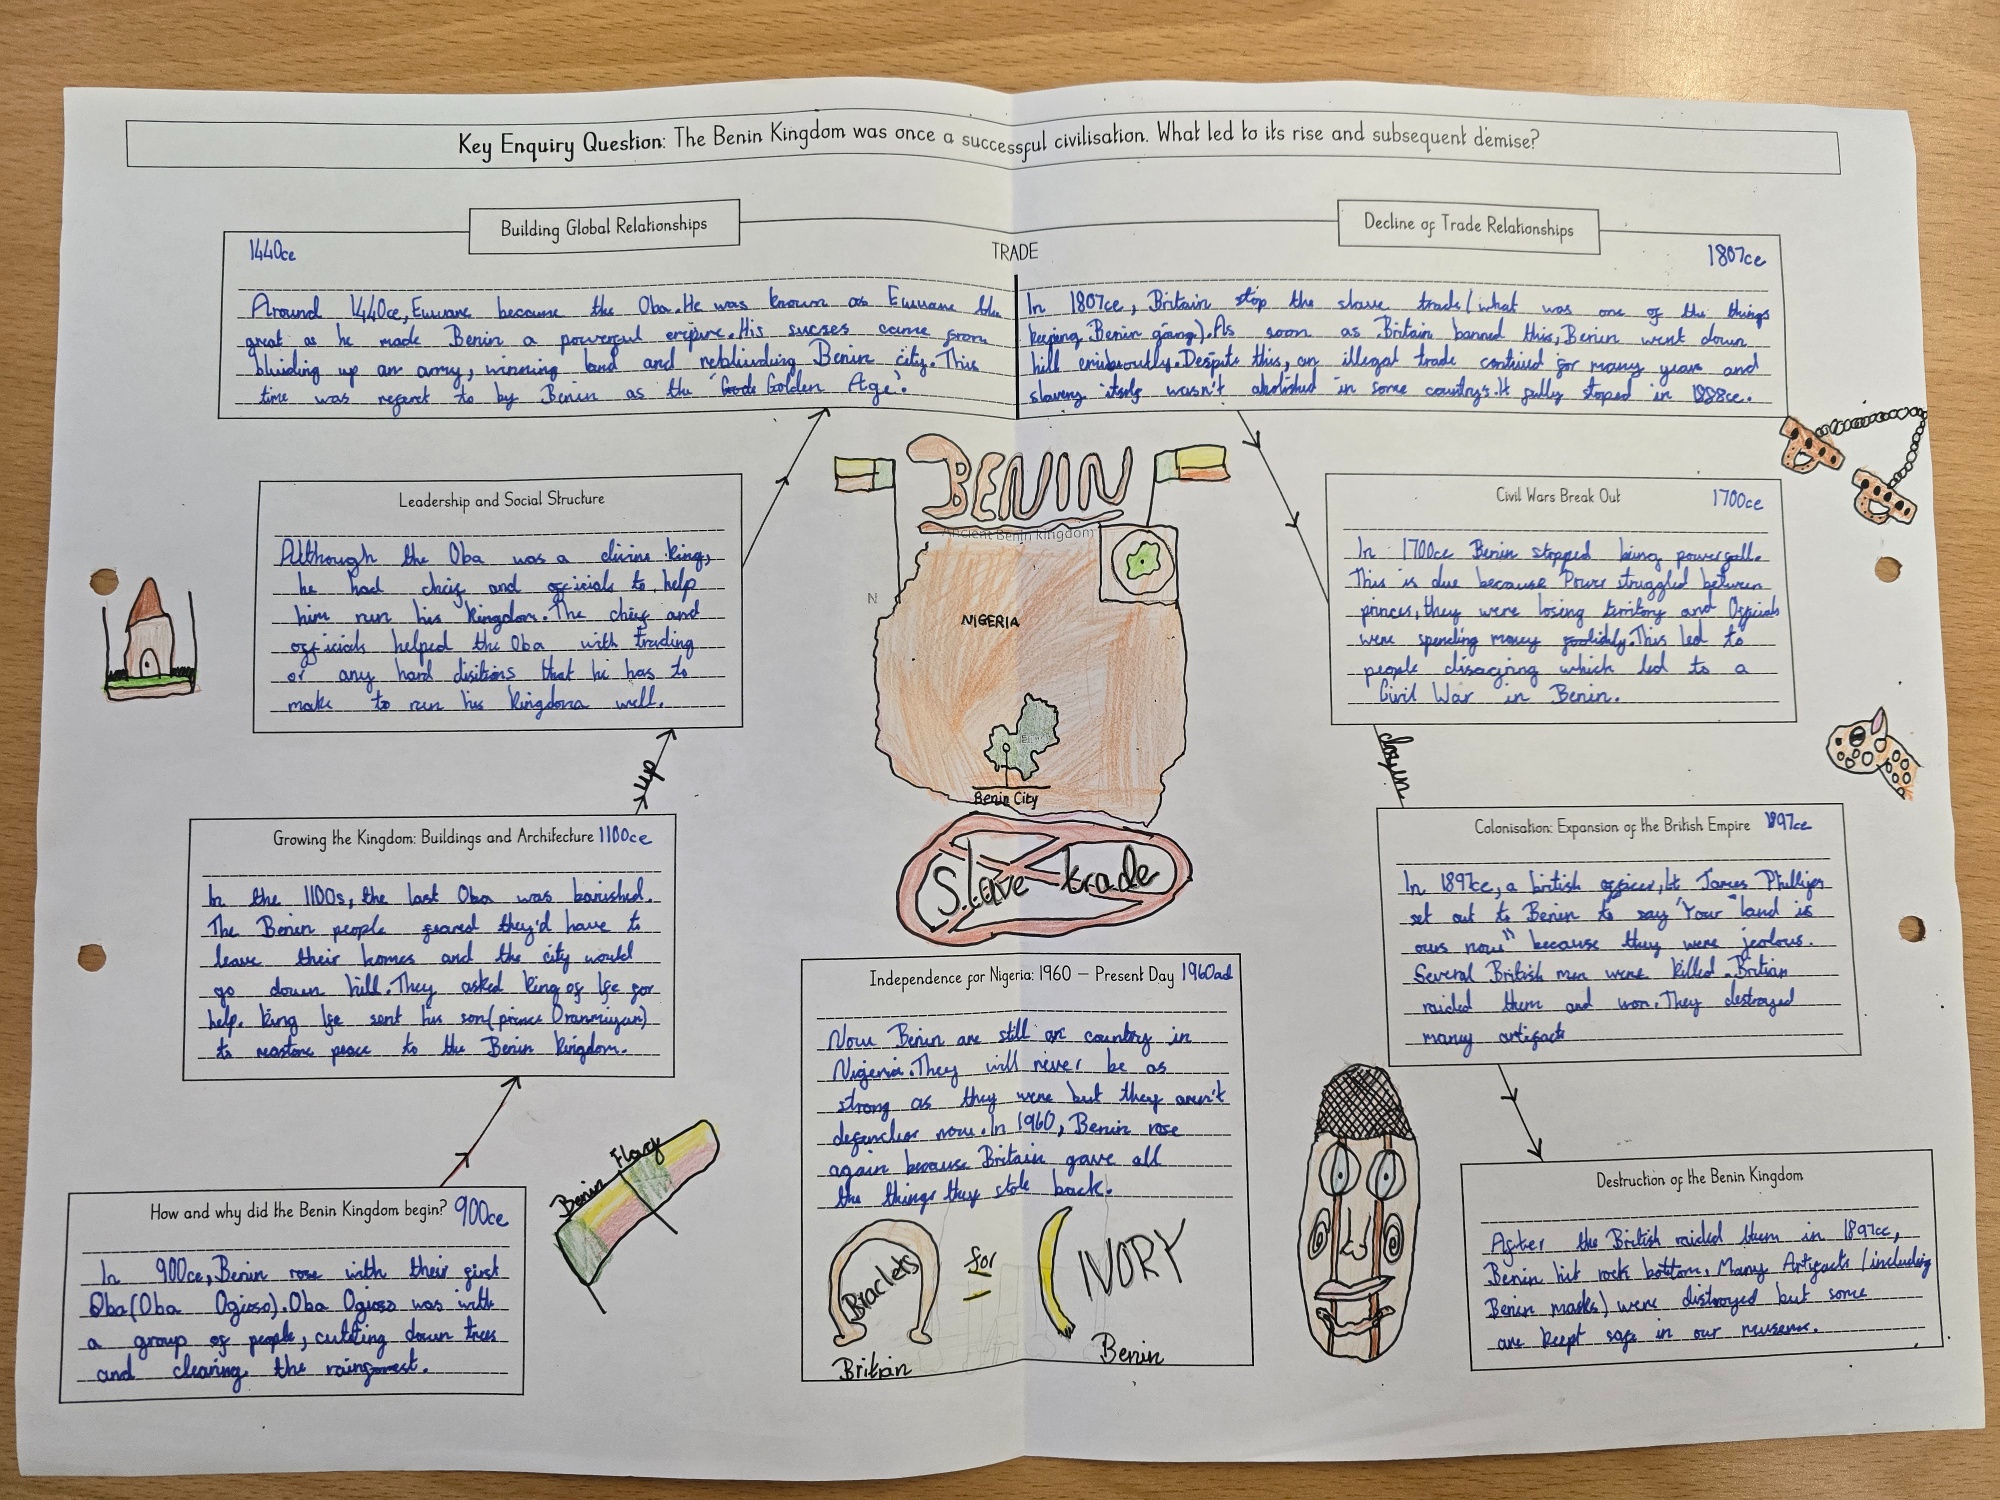 Key Enquiry Question: The Benin Kingdom was once a successful civilisation. What led to its rise and subsequent demise?
Building Global Relationships
1440ce
TRADE
Around 1440ce, Ewuare became the Oba. He was known as Ewuare the
great as he made Benin a powerful enpire. His sucses came from
bluiding up an army, winning land and rebluiding Benin city. This
time was referet to by Benin as the 'Golden Age'.
Decline of Trade Relationships
1807ce
In 1807ce, Britain stop the slave trade (what was one of the things
keeping Benin going). As soon as Britain banned this, Benin went down
hill Despite this, an illegal trade contiued for many years and
slavery itself wasn't abolished in some countrys. It fully stoped in 1888ce.
Leadership and Social Structure
Although the Oba was a divine king,
he had chiefs and officials to help
him run his kingdom. The chiefs and
officials helped the Oba with trading
or any hard disitions that he has to
make to run his kingdom well.
up
Growing the Kingdom: Buildings and Architecture 1100ce
In the 1100s, the last Oba was banished.
The Benin people feared they'd have to
leave their homes and the city would
go down hill. They asked king of Ife for
help. king Ife sent his son (prince Oranmiyan)
to reastore peace to the Benin kingdom.
How and why did the Benin Kingdom begin? 900ce
In 900ce, Benin rose with their first
Oba (Oba Ogisso). Oba Ogisso was with
a group of people, cutting down trees
and clearing the rainforest.
Benin Flag
BENIN
Ancient Benin Kingdom
N
NIGERIA
Benin City
Slave trade
Independence for Nigeria: 1960 – Present Day 1960ad
Now Benin are still a country in
Nigeria. They will never be as
strong as they were but they aren't
now. In 1960, Benin rose
again because Britain gave all
the things they stole back.
Braclets
for
IVORY
Britian
Benin
Civil Wars Break Out
1700ce
In 1700ce Benin stopped being powerfull.
This is due because Powe struggled between
princes, they were losing territory and Officials
were spending money foolishly. This led to
people disagring which led to a
Civil War in Benin.
down
Colonisation: Expansion of the British Empire 1897ce
In 1897ce, a british officer, Lt James Phillips
set out to Benin to say "Your land is
ours now" because they were jealous.
Several British men were killed. Britian
raided them and won. They destroyed
many artifacts
Destruction of the Benin Kingdom
After the British raided them in 1897ce,
Benin hit rock bottom, Many Artifacts (including
Benin masks) were distroyed but some
are keept safe in our musems.